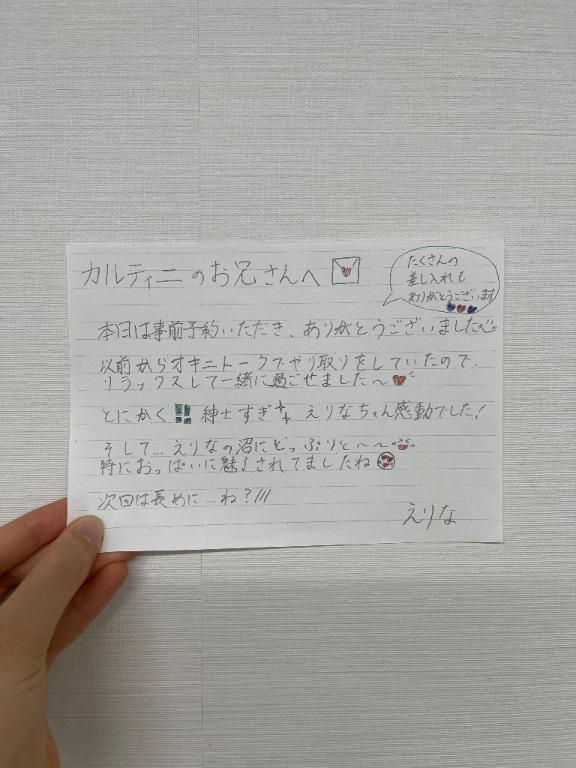 カルティニのお兄さんへ
たくさんの
差し入れも
ありがとうございます
本日は事前予約いただき、ありがとうございました
以前からオキニトークでやり取りをしていたので、
リラックスして一緒に過ごせました〜
とにかく‼紳士すぎ えりなちゃん感動でした!
そして…えりなの沼にどっぷりと〜〜
特におっぱいに魅了されてましたね
次回は長めに…ね?///
えりな